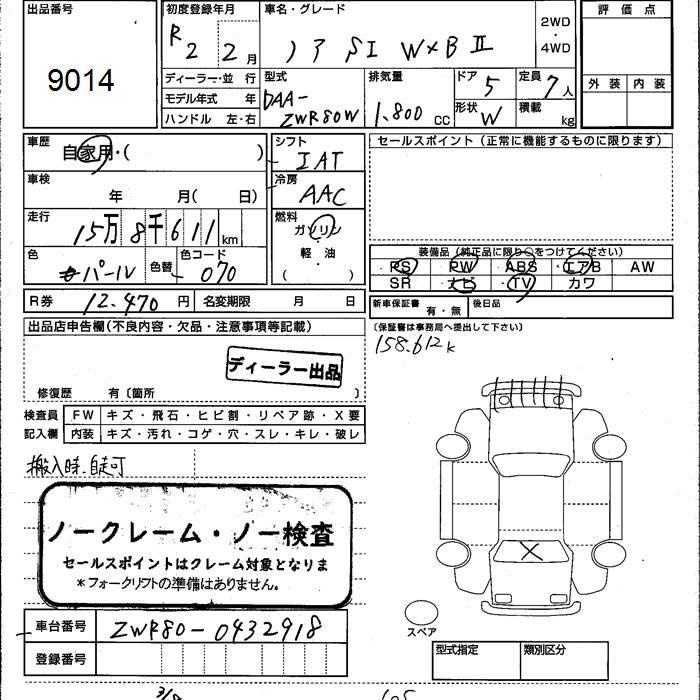 出品番号
9014
初度登録年月
R2 2月
車名・グレード
ノア SI W×B Ⅱ
2WD
・
4WD
評価点
外装 内装
ディーラー・並行
モデル年式 年
ハンドル 左・右
型式
DAA-
ZWR80W
排気量
1.800 cc
ドア 5
形状 W
定員 7人
積載 kg
車歴
自家用・( )
車検
年 月( 日)
走行
15万8千611km
色
パール
色替
色コード
070
シフト
IAT
冷房
AAC
燃料
ガソリン
軽・油
( )
セールスポイント(正常に機能するものに限ります)
装備品(純正品に限り○をつけてください)
PS PW ABS エアB AW
SR ナビ TV カワ
R券 12.470円 名変期限 月 日
新車保証書 有・無 後日品
(保証書は事務局へ提出して下さい)
158.612k
出品店申告欄(不良内容・欠品・注意事項等記載)
ディーラー出品
修復歴 有〔箇所 〕
検査員 FW キズ・飛石・ヒビ割・リペア跡・X要
記入欄 内装 キズ・汚れ・コゲ・穴・スレ・キレ・破レ
搬入時.自走可
ノークレーム・ノー検査
セールスポイントはクレーム対象となりま
*フォークリフトの準備はありません。
車台番号 ZWR80-0432918
登録番号
スペア
型式指定 類別区分